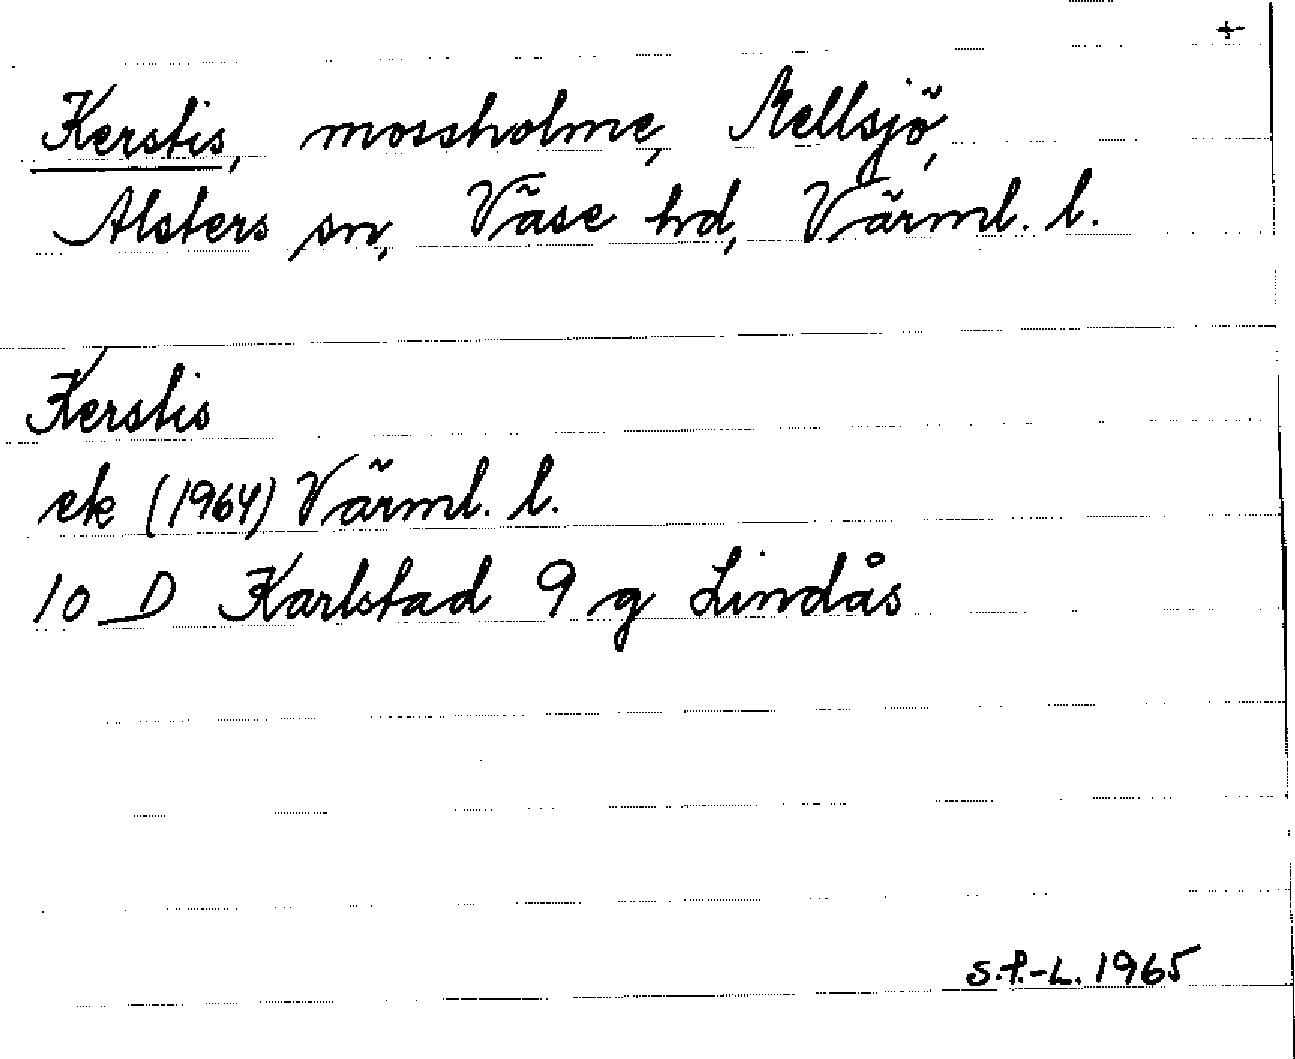 +
Kerstis, mossholme, Mellsjö,
Alsters sn, Väse hd, Värml. l.
Kerstis
ek (1964) Värml. l.
10 D Karlstad 9 g Lindås
S.F.-L. 1965